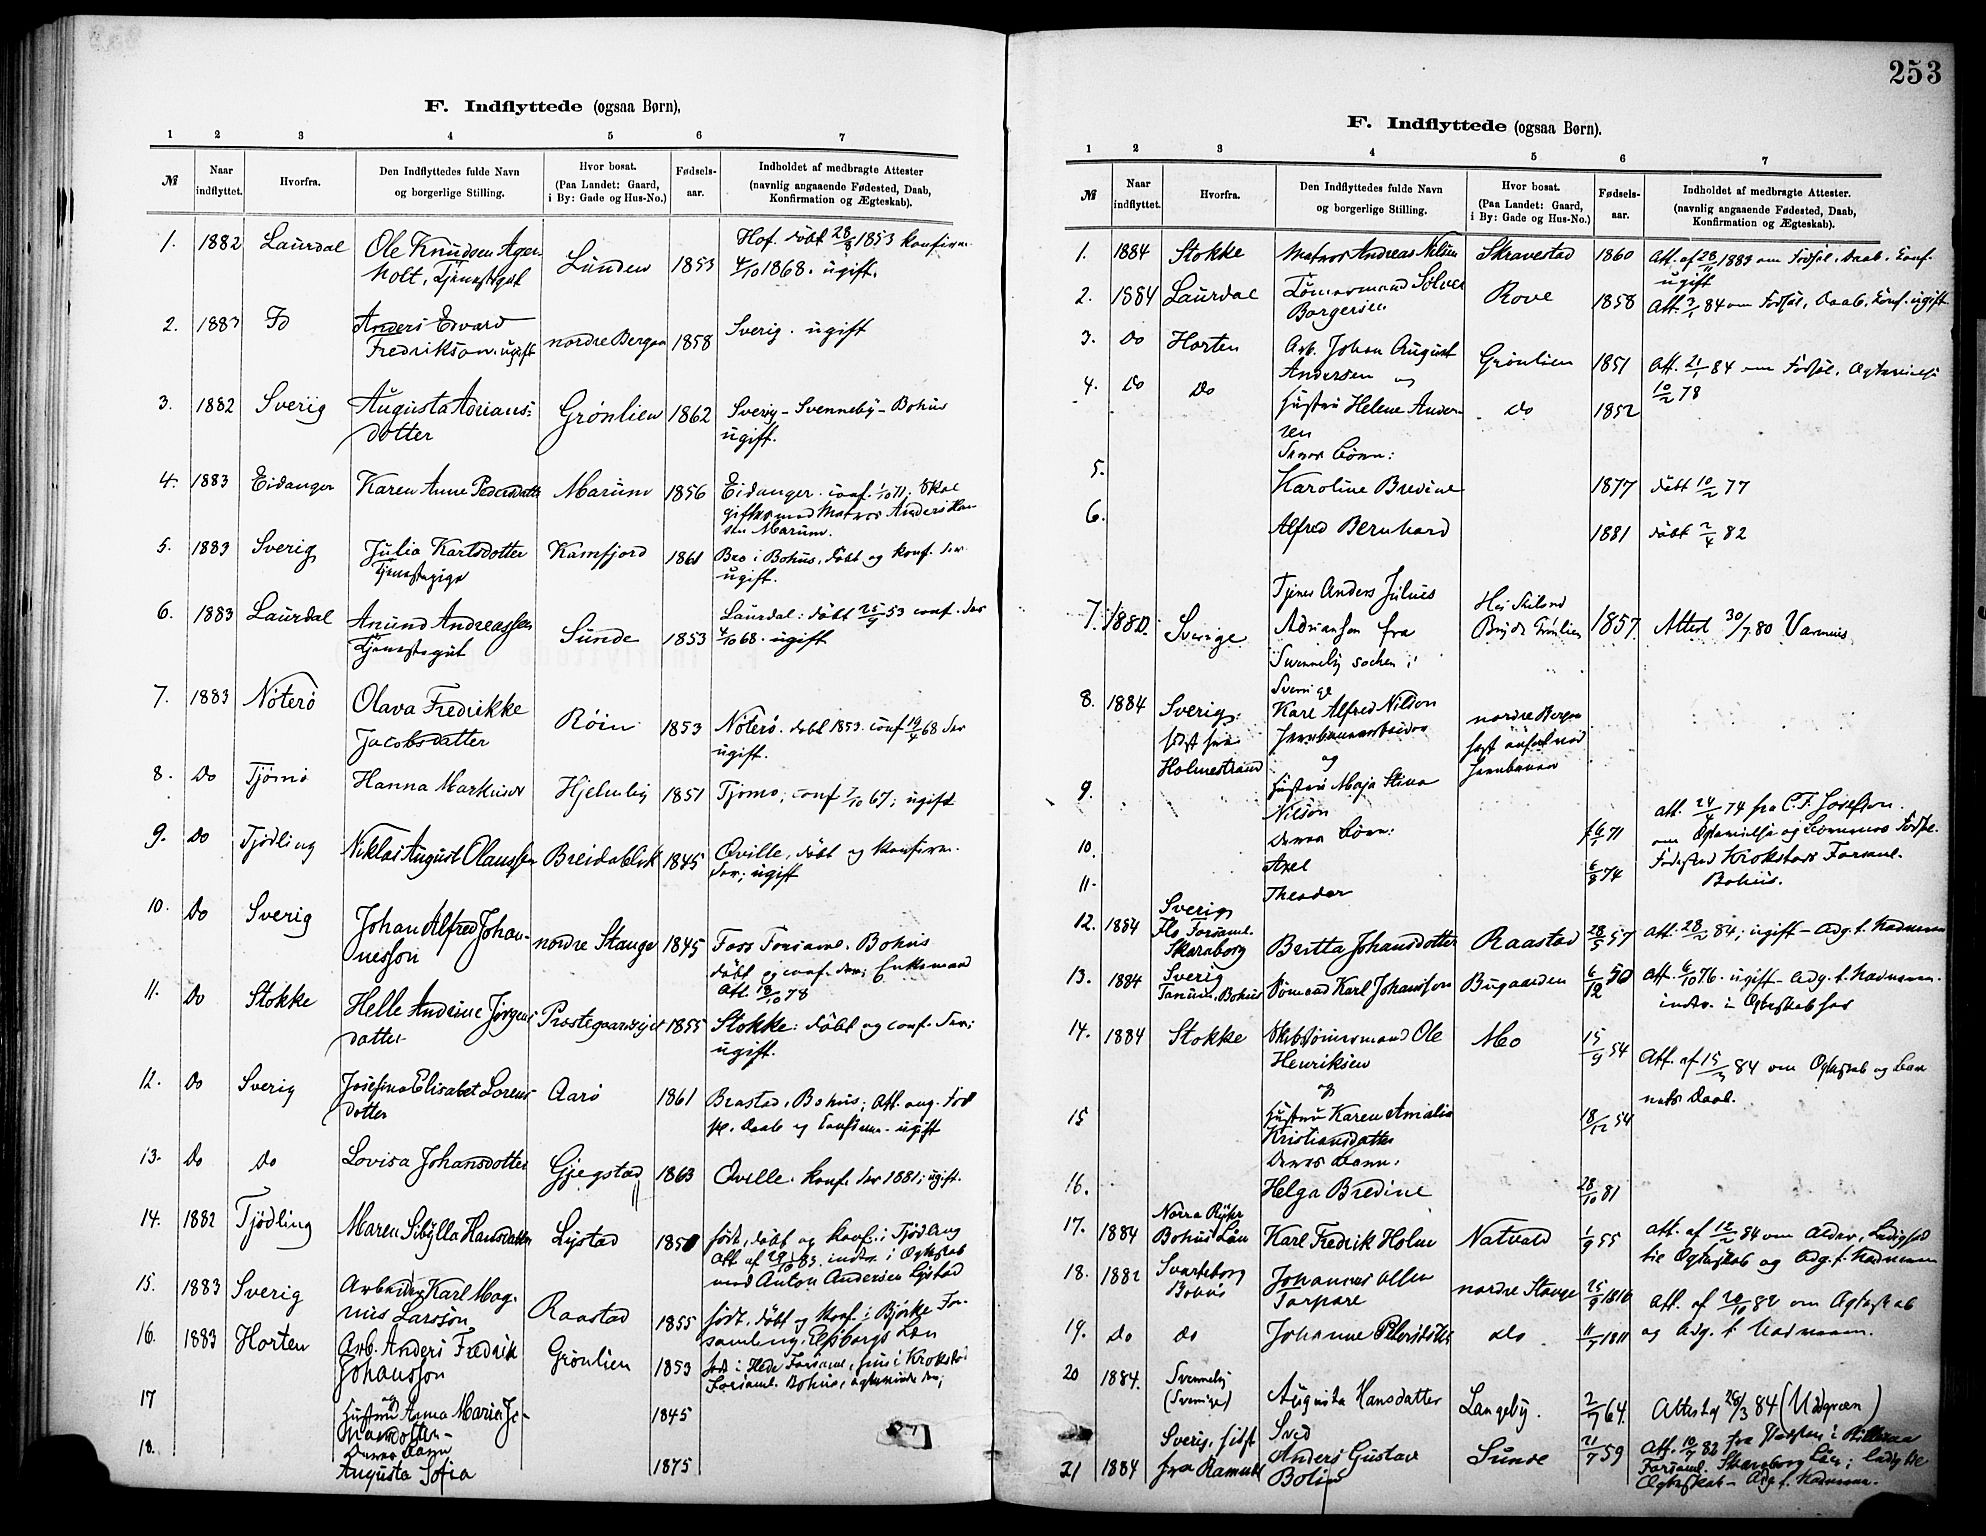 253
F. Indflyttede (ogsaa Børn),
1 2 3 4 5 6 7
№ Naar indflyttet. Hvorfra. Den Indflyttedes fulde Navn og borgerlige Stilling. Hvor bosat. (Paa Landet: Gaard, i By: Gade og Hus-No.) Fødsels-aar. Indholdet af medbragte Attester (navnlig angaaende Fødested, Daab, Konfirmation og Ægteskab).
1. 1882 Laurdal Ole Knudsen Ager- Lunden 1853 Hof. døbt 28/8 1853 konfirm.
holt, Tjenestegut 4/10 1868. ugift.
2. 1883 Do Anders Edvard nordre Bergan 1858 Sverig. ugift
Fredrikson. ugift
3. 1882 Sverig Augusta Adrians- Grønlien 1862 Sverig - Svenneby - Bohus
dotter ugift.
4. 1883 Eidanger Karen Anne Pedersdatter Marum 1856 Eidanger. conf. 1/10 71; skal
giftes med Matros Anders Han-
sen Marum.
5. 1883 Sverig Julia Karlsdotter Kamfjord 1861 Bro i Bohus, døbt og konf. der
Tjenestepige ugift.
6. 1883 Laurdal Anund Andreassen Sunde 1853 Laurdal: døbt 25/9 53 conf. der
Tjenestegut 4/10 68. ugift
7. 1883 Nøterø Olava Fredrikke Røin 1853 Nøterø. døbt 1853. conf 19/4 68 der
Jacobsdatter ugift.
8. Do Tjømø Hanna Markusen Hjelmby 1851 Tjømø; conf 7/10 67; ugift
9. Do Tjødling Niklas August Olaussen Breidablik 1845 Qville, døbt og konfirm.
der; ugift
10. Do Sverig Johan Alfred Johan- nordre Stange 1845 Foss Forsaml. Bohus
nesson døbt og conf. der; Enkemand
Att. 18/10 78
11. Do Stokke Helle Andrine Jørgens- 1855 Stokke: døbt og conf. der;
datter ugift.
12. Do Sverig Josefina Elisabet Lorens- Aarø 1861 Brastad, Bohus; Att. ang. Fød-
dotter sel, Daab og Confirm. ugift
13. Do Do Lovisa Johansdotter Gjegstad 1863 Qville. konf. der 1881; ugift.
14. 1882 Tjødling Maren Sibylla Hansdatter Lystad 1850 født, døbt og konf. i Tjødling
Att af 29/10 83. indtr. i Ægteskab
med Anton Andersen Lystad
15. 1883 Sverig Arbeider Karl Mag- Raastad 1855 født, døbt og konf. i Bjørke For-
nus Larsson samling, Elfsborgs Län
16. 1883 Horten Arb. Anders Fredrik Grønlien 1853 født i Hede Forsaml.
Johansson Forsaml. Bohus,
17 og Hustru Anna Maria 1845
18. Deres Barn
Augusta Sofia 1875
F. Indflyttede (ogsaa Børn).
1 2 3 4 5 6 7
№ Naar indflyttet. Hvorfra. Den Indflyttedes fulde Navn og borgerlige Stilling. Hvor bosat. (Paa Landet: Gaard, i By: Gade og Hus-No.) Fødsels-aar. Indholdet af medbragte Attester. (navnlig angaaende Fødested, Daab, Konfirmation og Ægteskab).
1. 1884 Stokke Matros Andreas Nilsen Skravestad 1860 Att. af 28/11 1883 om Fødsel, Daab, Conf.
ugift
2. 1884 Laurdal Tømermand Sølver Rove 1858 Att. 3/1 84 om Fødsel, Daab, Conf. ugift
Borgersen
3. Do Horten Arb. Johan August Grønlien 1851 Att. 21/1 84 om Fødsel, Ægtevielse
Andersen og 10/2 78
4. Do Do Hustru Helene Ander- Do 1852
sen
Deres Børn:
5. Karoline Bredine 1877 døbt 10/2 77
6. Alfred Bernhard 1881 døbt 2/4 82
7. 1880. Sverige Tjener Anders Julius 1857 Attest 30/7 80
Adrianson fra
Svenneby Sochen i
Sverige
8. 1884 Sverig, Karl Alfred Nilson nordre Bergan
sidst fra Jernbanearbeider
Holmestrand og jernbanen
9. Hustru Maja Stina
Nilson Att. 24/4 74 fra C.F. Josefson.
Deres Børn: om Ægtevielse og Børnenes Fødsel.
10. Axel 6/1 71 Fødested Krokstads Forsaml.
11. Theodor 6/8 74 Bohus.
12. 1884 Sverig
Flo Forsaml.
Skaraborg Britta Johansdotter Raastad 28/5 57 Att. 28/2 84; ugift - Adg. t. Nadveren
13. 1884 Sverig
Tanum, Bohus Sømand Karl Johansson Bugaarden 6/12 50 Att. 6/10 76. ugift - Adg. t. Nadveren.
indtr. i Ægteskab her
14. 1884 Stokke Skibstømermand Ole Moo 15/9 54 Att. af 15/3 84 om Ægteskab og Bar-
Henriksen nets Daab.
og
15 Hustru Karen Amalia 18/12 54
Kristiansdatter
Deres Barn:
16. Helga Bredine 28/10 81
17. 1884 Norra Ryhr
Bohus Län Karl Fredrik Holm Natvald 1/9 55 Att. af 12/2 84 om Alder, Ledighed
til Ægteskab og Adg. t. Nadveren
18. 1882 Svarteborg Johannes Olsen nordre Stange 25/9 1810 Att. af 20/10 82 om Ægteskab
Bohus Torpare og Adg. t. Nadveren.
19. Do Do Johanne Petersdotter Do 11/7 1811
20 1884. Svenneby
(Sverige) Augusta Hansdatter Langeby. 2/7 64. Attest af 26/3 84 (Uldgreen)
21 1884 Sverig, sidst Smed
fra Ramnæs Anders Gustav Sunde 21/7 59 Att. 10/7 82 fra
Bolin Forsaml. Skaraborg Län; ledig til
Ægteskab - Adg. t. Nadveren.